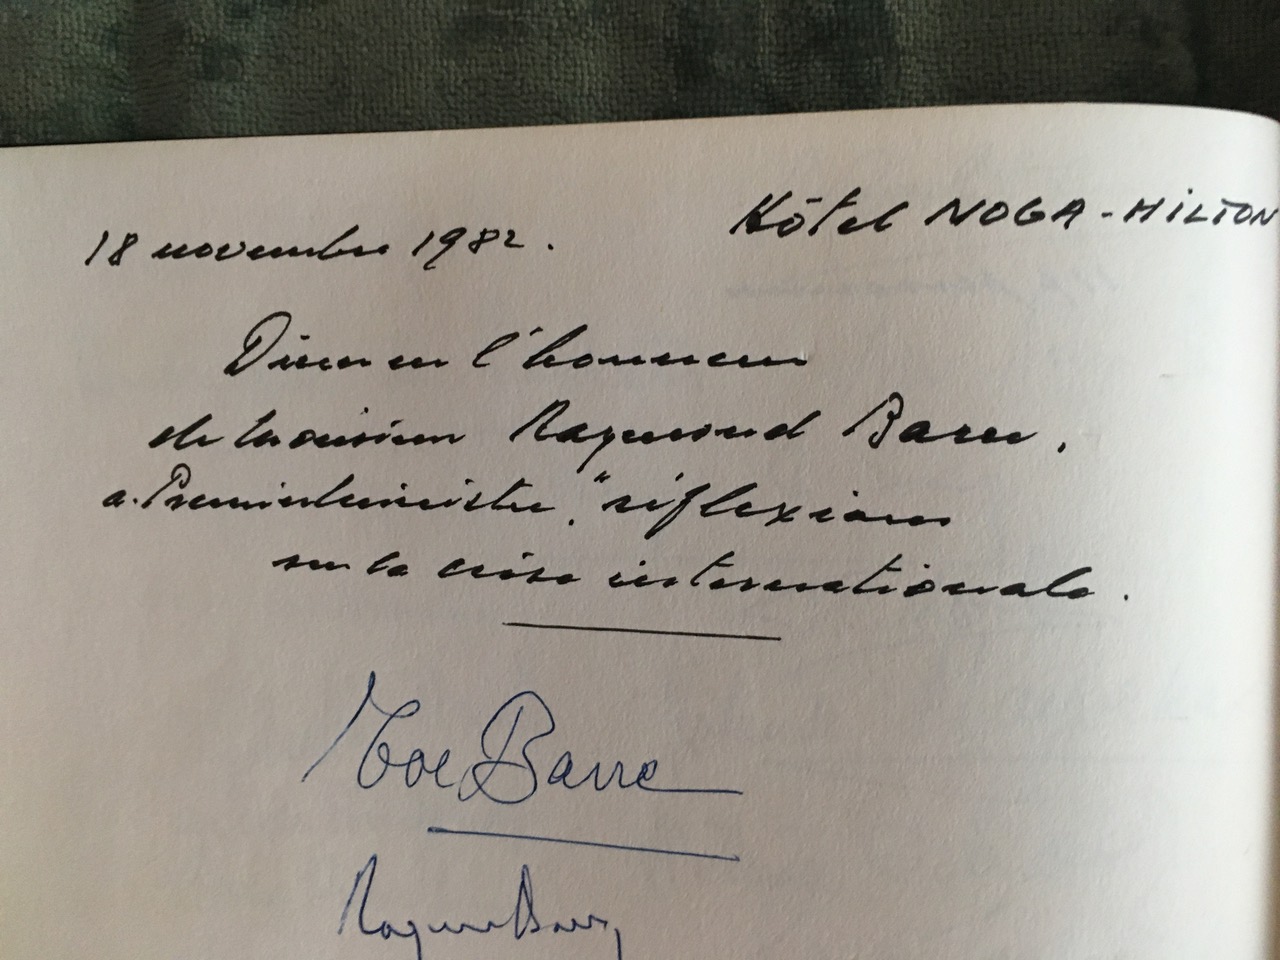 18 novembre 1982.
Hôtel NOGA-HILTON
Diner en l'honneur
de Monsieur Raymond Barre,
a. Premier Ministre, "réflexions
sur la crise internationale.
Barre
Raymond Barre